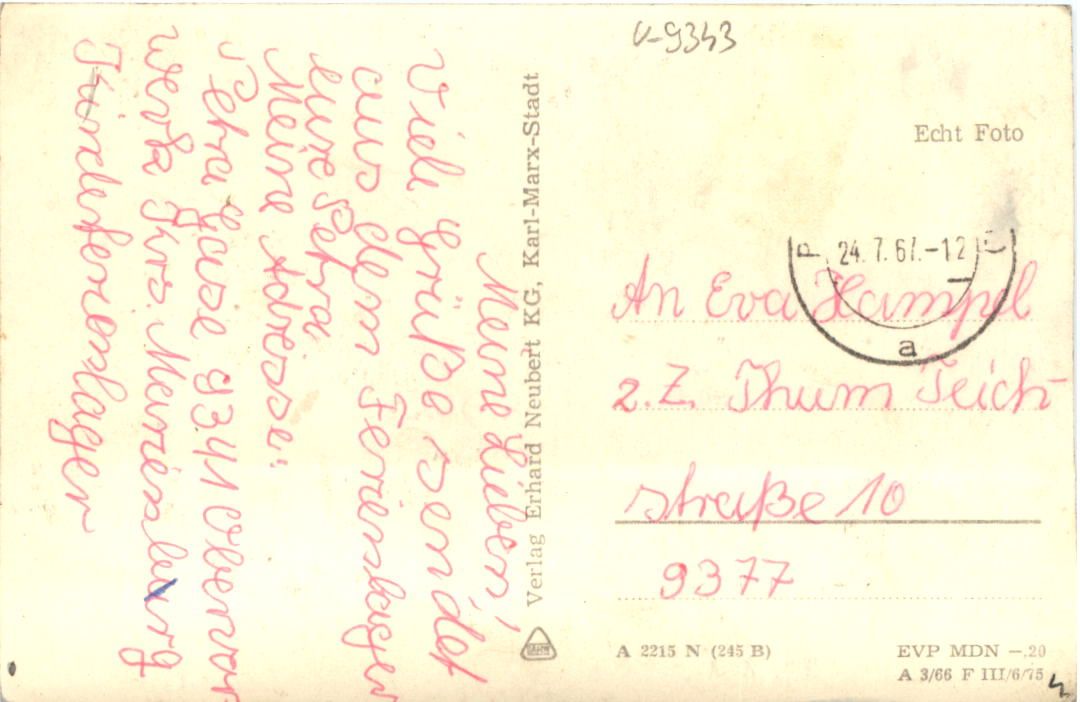 V-9343
Meine Lieben,
Viele Grüße sendet
aus dem Ferienlager
eure Petra
Meine Adresse:
Petra 9341 Obervor
werk Krs. Marienburg
Kinderferienlager
Verlag Erhard Neubert KG, Karl-Marx-Stadt
Echt Foto
24.7.67.-12
a
An Eva Hampel
z.Z. Thum Teich-
straße 10
9377
A 2215 N (245 B)
EVP MDN -.20
A 3/66 F III/6/75